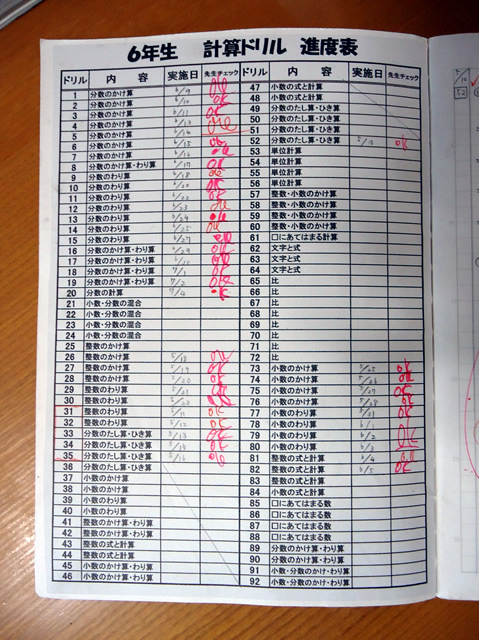 6年生 計算ドリル 進度表
ドリル 内容 実施日 先生チェック ドリル 内容 実施日 先生チェック
1 分数のかけ算 6/9 ok 47 小数の式と計算
2 分数のかけ算 6/10 ok 48 小数の式と計算
3 分数のかけ算 6/11 ok 49 分数のたし算・ひき算
4 分数のかけ算 ok 50 分数のたし算・ひき算
5 分数のかけ算 51 分数のたし算・ひき算
6 分数のかけ算 6/15 ok 52 分数のたし算・ひき算 ok
7 分数のかけ算 6/16 ok 53 単位計算
8 分数のかけ算・わり算 6/17 ok 54 単位計算
9 分数のわり算 6/18 ok 55 単位計算
10 分数のわり算 ok 56 単位計算
11 分数のわり算 6/22 ok 57 整数・小数のかけ算
12 分数のわり算 6/23 ok 58 整数・小数のかけ算
13 分数のわり算 6/24 ok 59 整数・小数のかけ算
14 分数のわり算 6/25 ok 60 整数・小数のかけ算
15 分数のわり算 6/27 ok 61 □にあてはまる計算
16 分数のかけ算・わり算 6/29 ok 62 文字と式
17 分数のかけ算・わり算 ok 63 文字と式
18 分数のかけ算・わり算 7/1 ok 64 文字と式
19 分数のかけ算・わり算 7/2 ok 65 比
20 分数の計算 7/4 ok 66 比
21 小数・分数の混合 67 比
22 小数・分数の混合 68 比
23 小数・分数の混合 69 比
24 小数・分数の混合 70 比
25 整数のかけ算 71 比
26 整数のかけ算 5/18 ok 72 比
27 整数のかけ算 5/19 ok 73 小数のかけ算 5/25 ok
28 整数のかけ算 5/20 ok 74 小数のかけ算 5/26 ok
29 整数のわり算 5/21 ok 75 小数のかけ算 5/27 ok
30 整数のわり算 ok 76 小数のかけ算 5/28 ok
31 整数のわり算 5/11 ok 77 小数のわり算 ok
32 整数のわり算 5/12 ok 78 小数のわり算 6/1
33 分数のたし算・ひき算 5/13 ok 79 小数のわり算 6/2 ok
34 分数のたし算・ひき算 ok 80 小数のわり算
35 分数のたし算・ひき算 5/16 ok 81 整数の式と計算 6/4 ok
36 分数のたし算・ひき算 82 整数の式と計算 6/5 ok
37 小数のかけ算 83 整数の式と計算
38 小数のかけ算 84 小数の式と計算
39 小数のわり算 85 □にあてはまる数
40 小数のわり算 86 □にあてはまる数
41 整数のかけ算・わり算 87 □にあてはまる数
42 整数のかけ算・わり算 88 □にあてはまる数
43 整数の式と計算 89 分数のかけ算・わり算
44 整数の式と計算 90 分数のかけ算・わり算
45 小数のかけ算・わり算 91 小数・分数のかけ・わり算
46 小数のかけ算・わり算 92 小数・分数のかけ・わり算